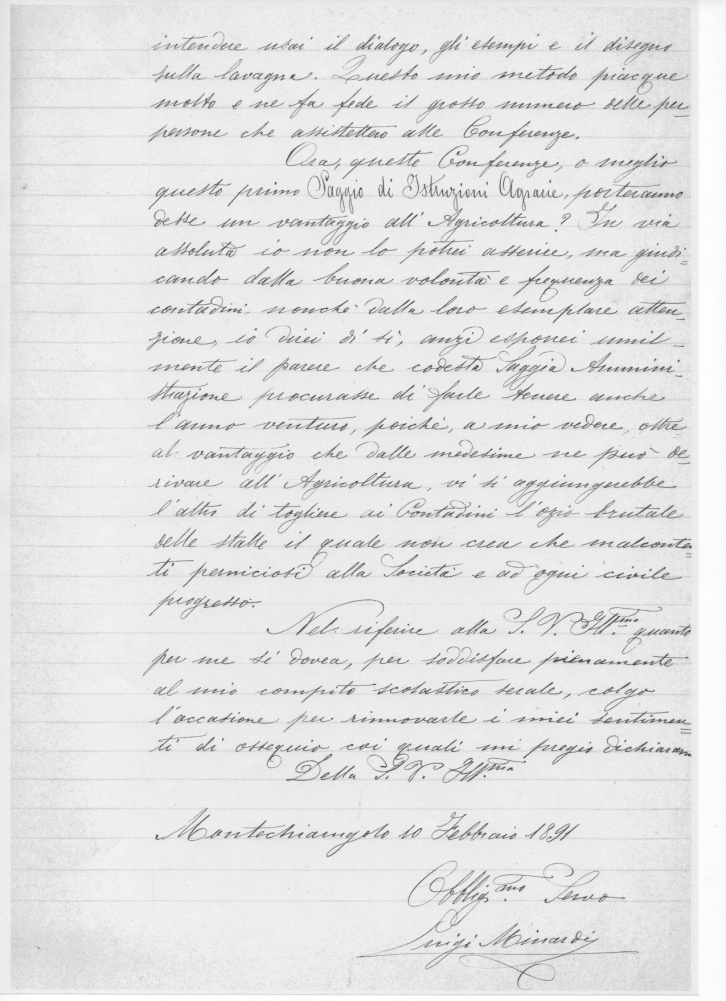 intendere usai il dialogo, gli esempi e il disegno
sulla lavagna. Questo mio metodo piacque
molto e ne fa fede il grosso numero delle per-
persone che assistettero alle Conferenze.
Ora, queste Conferenze, o meglio
questo primo Saggio di Istruzioni Agrarie, porteranno
desse un vantaggio all'Agricoltura? In via
assoluta io non lo potrei asserire, ma giudi-
cando dalla buona volontà e frequenza dei
contadini, nonchè dalla loro esemplare atten-
zione, io direi di sì, anzi esporrei umil-
mente il parere che codesta Saggia Ammini-
strazione procurasse di farle tenere anche
l'anno venturo, poichè, a mio vedere, oltre
al vantaggio che dalle medesime ne può de-
rivare all'Agricoltura, vi si aggiungerebbe
l'altro di togliere ai Contadini l'ozio brutale
delle stalle il quale non crea che malconten-
ti perniciosi alla Società e ad ogni civile
progresso.
Nel riferire alla S. V. Ill.ma quanto
per me si dovea, per soddisfare pienamente
al mio compito scolastico serale, colgo
l'occasione per rinnovarle i miei sentimen-
ti di ossequio coi quali mi pregio dichiararmi
Della S. V. Ill.ma
Montechiarugolo 10 Febbraio 1891
Obblig.mo Servo
Luigi Minardi